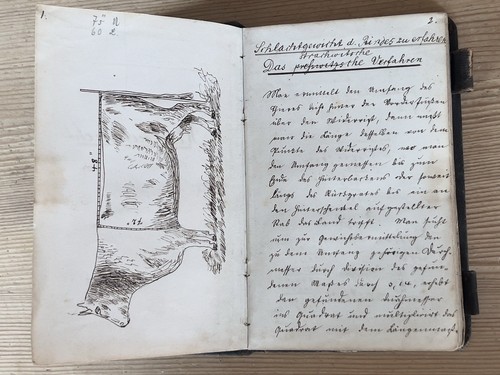 1.
75 ll
60 l
84
72
2.
Schlachtgewicht d. Rindes zu erfahren
Das preßwitzsche Verfahren
Man ermittelt den Umfang des
Tieres dicht hinter der Vorderfüßen
über den Widerrist, dann mißt
man die Länge desselben von dem
Punkte des Widerristes, wo man
den Umfang gemessen bis zum
Ende des Hinterbackens oder soweit
längs des Rückgrates bis ein an
den Hinterschenkel aufgestellter
Stab das Band trifft. Man sucht
nun zur Gewichtsermittelung den
zu dem Umfang gehörigen Durch-
messer durch division des gefun-
denen Maßes durch erhebt
den gefundenen Durchmesser
ins Quadrat und multipliziert das
Quadrat mit dem Längenmaaß.